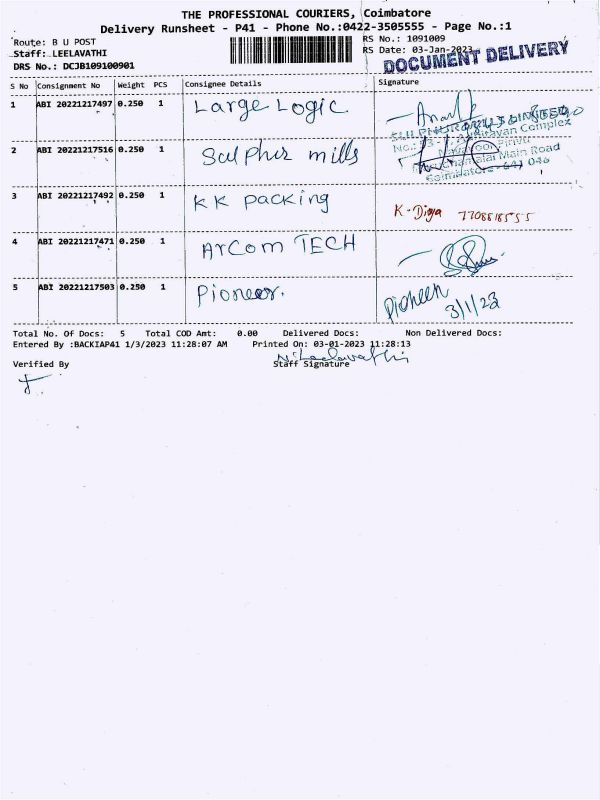 THE PROFESSIONAL COURIERS, Coimbatore
Delivery Runsheet - P41 - Phone No.:0422-3505555 - Page No.:1
Route: B U POST
RS No.: 1091009
Staff: LEELAVATHI
RS Date: 03-Jan-2023
DRS No.: DCJB109100901
DOCUMENT DELIVERY
S No Consignment No Weight PCS Consignee Details Signature
1 ABI 20221217497 0.250 1 Large Logic
2 ABI 20221217516 0.250 1 Sulphur mills
Main Road
3 ABI 20221217492 0.250 1 KK packing K-Divya
4 ABI 20221217471 0.250 1 ArCom TECH
5 ABI 20221217503 0.250 1 Pioneer. Pioneer
3/1/23
Total No. Of Docs: 5 Total COD Amt: 0.00 Delivered Docs: Non Delivered Docs:
Entered By :BACKIAP41 1/3/2023 11:28:07 AM Printed On: 03-01-2023 11:28:13
N. Leelavathi
Verified By Staff Signature